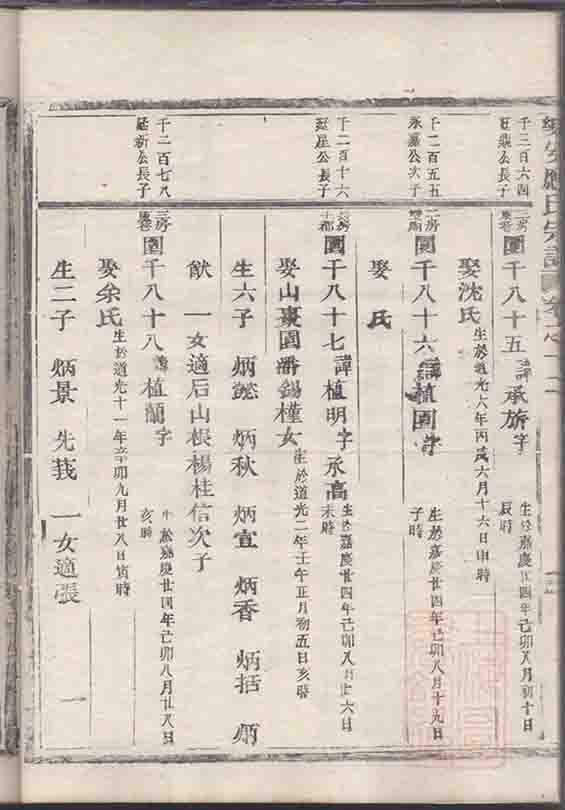 樂安 氏宗譜
千三百六四
公長子
三房
千八十五 諱承旂字
生於嘉慶廿四年己卯八月初十日
辰時
娶沈氏
生於道光六年丙戌六月十六日申時
千二百五五
永嘉公次子
二房
千八十六 諱植園字
生於嘉慶廿四年己卯八月十九日
子時
娶 氏
千二百十六
廷星公長子
千八十七 諱植明字承高
生於嘉慶廿四年己卯八月廿六日
未時
娶山棗園潘錫槿女
生於道光二年壬午正月初五日亥時
生六子 炳懿 炳秋 炳宣 炳香 炳括 炳
猷 一女適后山根楊桂信次子
千二百七八
廷新公長子
三房
千八十八 諱植蘭字
生於嘉慶廿四年己卯八月廿八日
亥時
娶余氏
生於道光十一年辛卯九月廿八日寅時
生二子 炳景 先莪 一女適張
一